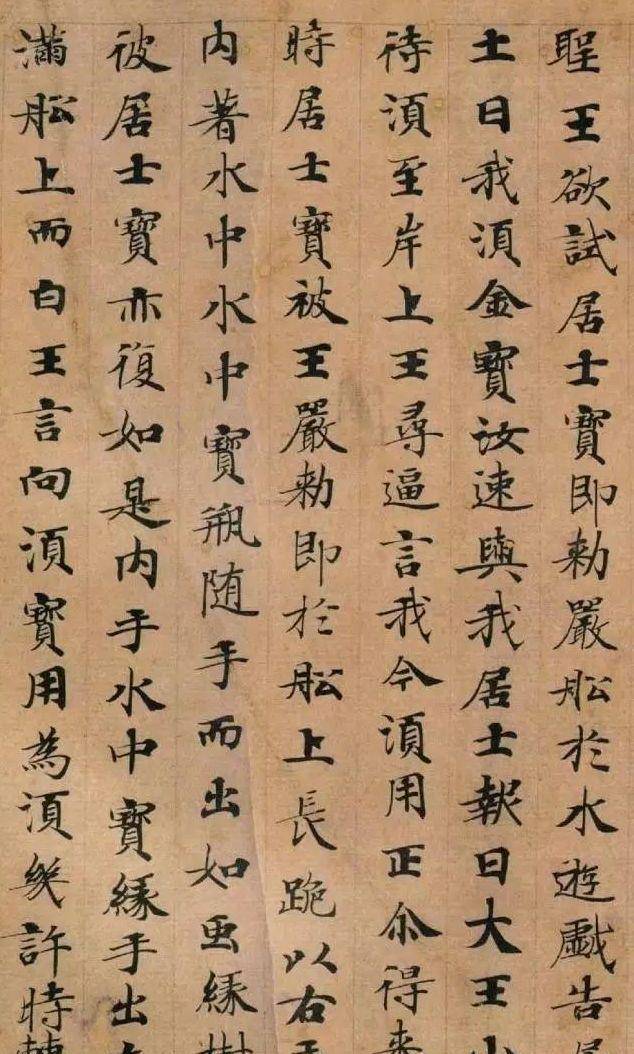 聖王欲試居士寳即勅嚴舩於水遊戲告居
士曰我湏金寳汝速與我居士報曰大王小
待湏至岸上王尋逼言我今湏用正尒得來
時居士寳被王嚴勅即於舩上長跪以右手
内著水中水中寳瓶随手而出如虫縁樹
彼居士寳亦復如是内手水中寳縁手出
滿舩上而白王言向湏寳用為湏幾許時轉